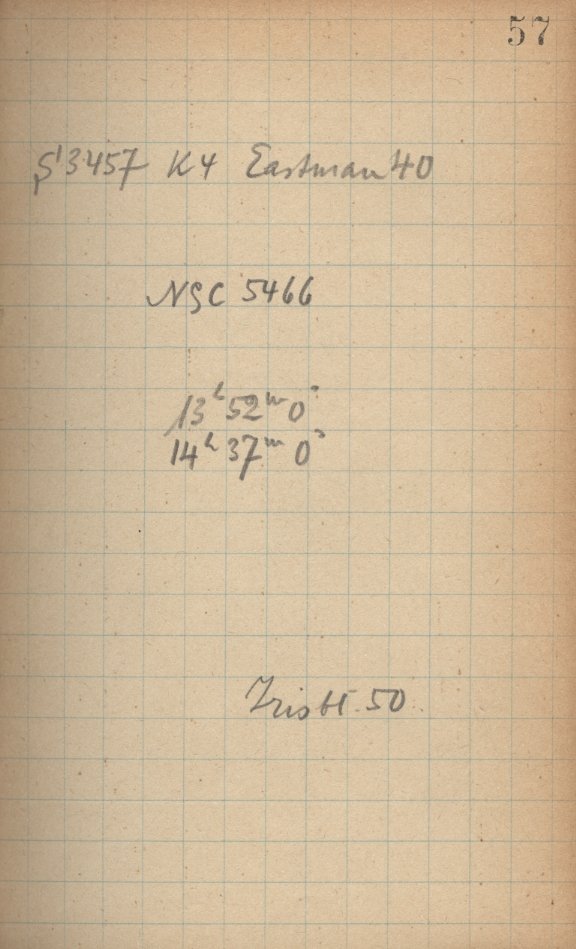 57
S 3457 K4 Eastman 40
NGC 5466
13h 52m 0s
14h 37m 0s
50